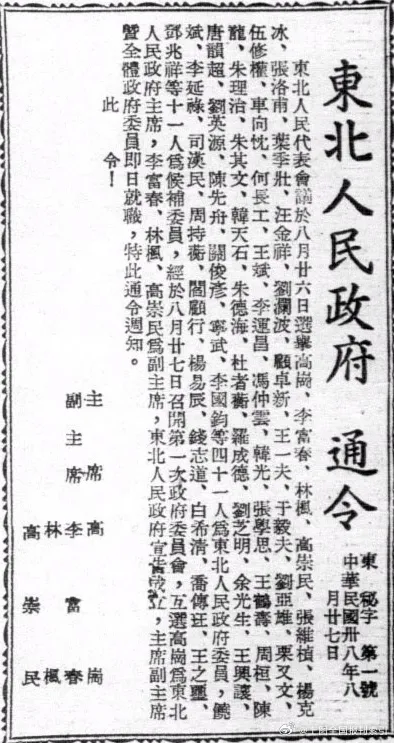 東北人民政府 通令
東秘字第一號
中華民國卅八年八
月廿七日
東北人民代表會議於八月廿六日選舉高崗、李富春、林楓、高崇民、張維楨、楊克
冰、張洛甫、葉季壯、汪金祥、劉瀾波、顧卓新、王一夫、于毅夫、劉亞雄、栗又文、
伍修權、車向忱、何長工、王斌、李運昌、馮仲雲、韓光、張學思、王鶴壽、周桓、陳
龍、朱理治、朱其文、韓天石、朱德海、杜者蘅、羅成德、劉芝明、余光生、王興讓、
唐韻超、劉英源、陳先舟、閻俊彥、寧武、李國鈞等四十一人爲東北人民政府委員，饒
斌、李延祿、司漢民、周持衡、閻顧行、楊易辰、錢志道、白希清、喬傳珏、王之璽、
鄧兆祥等十一人爲候補委員，經於八月廿七日召開第一次政府委員會，互選高崗爲東北
人民政府主席，李富春、林楓、高崇民爲副主席，東北人民政府宣告成立，主席副主席
暨全體政府委員即日就職，特此通令週知。
此 令！
主席 高崗
副主席 李富春
林楓
高崇民